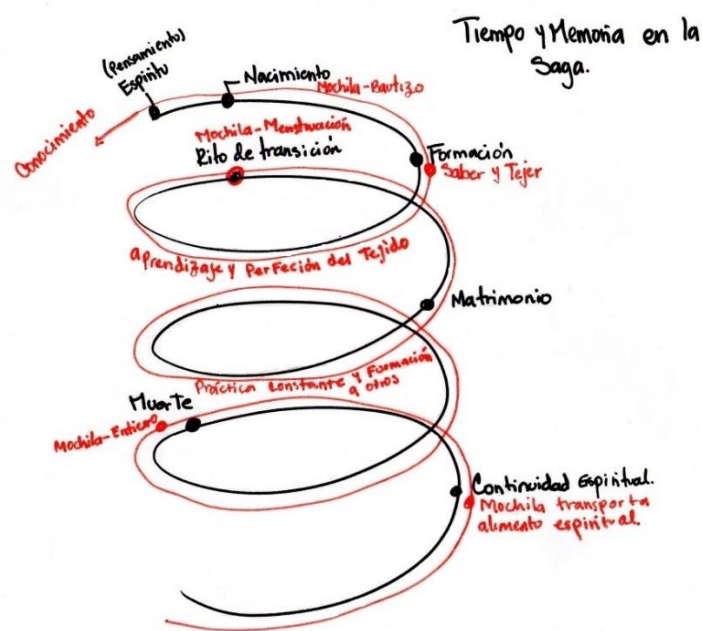 Tiempo y Memoria en la
Saga.
(Pensamiento)
Espíritu
Nacimiento
Mochila-Bautizo
Conocimiento
Mochila-Menstruación
Rito de transición
Formación
Saber y Tejer
aprendizaje y Perfeción del Tejido
Matrimonio
Práctica constante y Formación
a otros
Muerte
Mochila-Entierro
Continuidad Espiritual.
Mochila transporta
alimento espiritual.